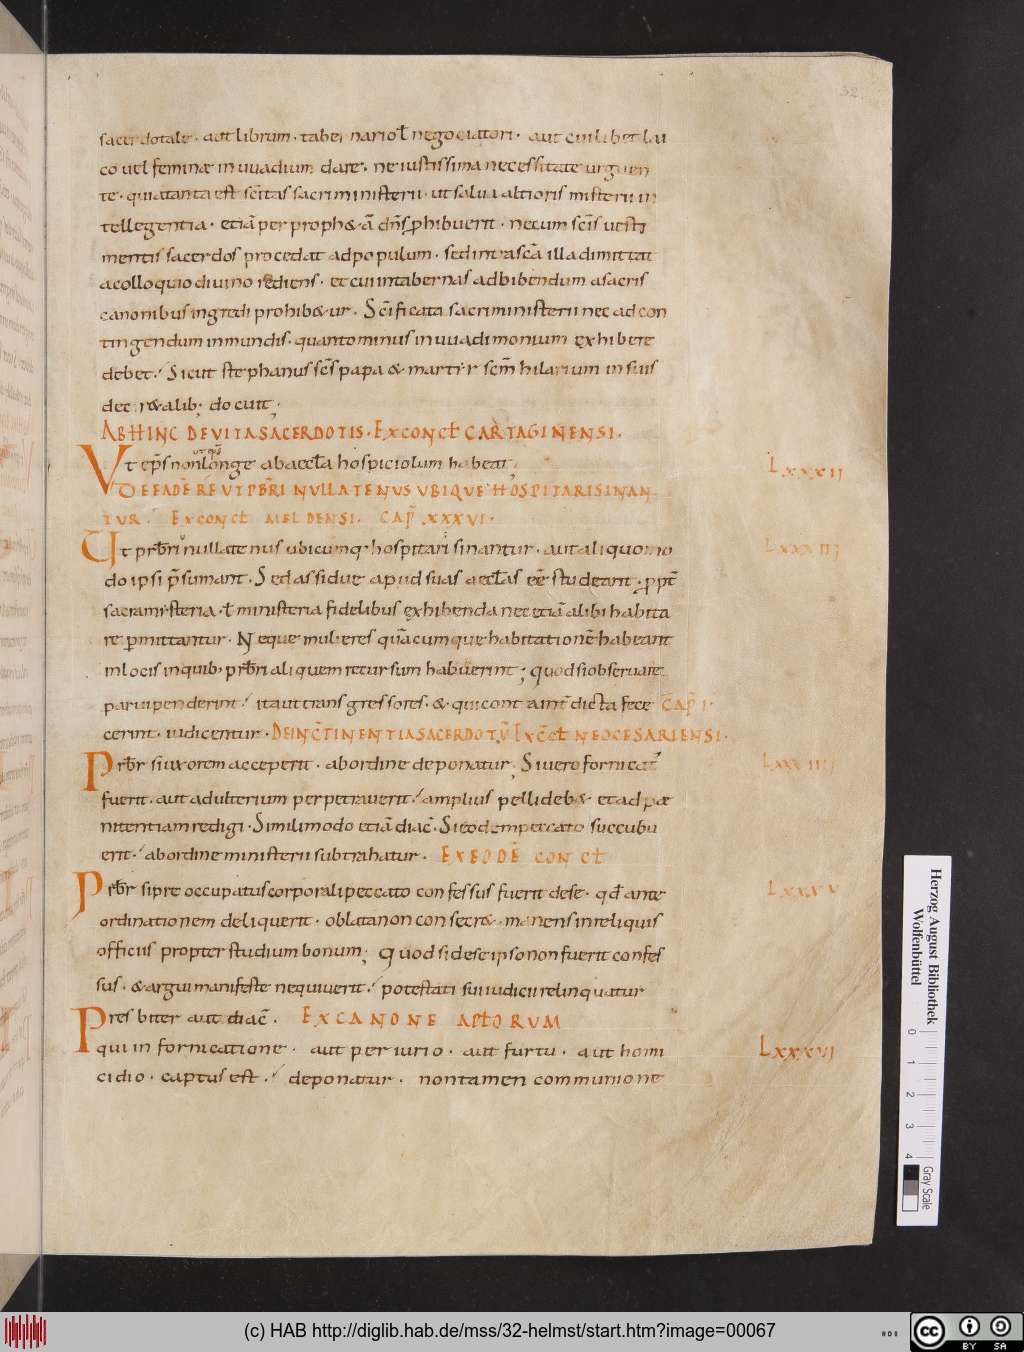 32
sacerdotale · aut librum · tabernario ł negociatori · aut cuilibet lai
co uel feminæ in uuadium dare · ne iustissima necessitate urguen
te · quia tanta est sc̄itas sacri ministerii · ut salua altioris misterii in
tellegentia · etiā per proph&ā dn̄s ꝓhibuerit · ne cum scīs uesti
mentis sacerdos procedat ad populum · sed intra scā illa dimittat
a colloquio diuino rediens · et cum tabernas ad bibendum a sacris
canonibus ingredi prohib&ur · Scīficata sacri ministerii nec ad con
tingendum inmundis · quanto minus in uuadimonium exhibere
debet · Sicut stephanus scs̄ papa & martir scm̄ hilarium in suis
decr&alib; docuit ;
ABHINC DE VITA SACERDOTIS · EX CONCŁ CARTAGINENSI ·
Vt ep̄s non longe ab aeccła hospiciolum habeat ; LXXXII
DE EADĒ RE UT PB̄RI NULLATENUS UBIQUE HOSPITARI SINAN
TUR · EX CONCŁ MELDENSI · CAP̄ XXXVI ·
Ut prb̄ri nullatenus ubicumq; hospitari sinantur · aut aliquo mo LXXXIII
do ipsi p̄sumant · Sed assidue apud suas aeccłas eē studeant · ꝓpt̄
sacramisteria · ł ministeria fidelibus exhibenda nec etiā alibi habita
re ꝑmittantur · Neque mulieres quācumque habitationē habeant
in locis in quib; prb̄ri aliquem recursum habuerint ; quod si obseruare
paruipenderint · ita ut transgressores · & qui cont̄ aint̄dicta fece CAP̄ I ·
cerint · iudicentur · DE INC̄TINENTIA SACERDOTŪ EX CC̄Ł NEOCESARIENSI ·
Prb̄r si uxorem acceperit · ab ordine deponatur ; Si uero fornicat' LXXXIIII
fuerit · aut adulterium perpetrauerit · amplius pelli deb& et ad pæ
nitentiam redigi · Simili modo etiā diac̄ · Si eodem peccato succubu
erit · ab ordine ministerii subtrahatur · EX EODĒ CONCŁ
Prb̄r si preoccupatus corporali peccato confessus fuerit de se · qđ ante LXXXV
ordinationem deliquerit · oblata non consecr& · manens in reliquis
officiis propter studium bonum ; Quod si de se ipso non fuerit confes
sus · & argui manifeste nequiuerit · potestati sui iudicii relinquatur
Presbiter aut diac̄ · EX CANONE APŁORUM
qui in fornicatione · aut periurio · aut furtu · aut homi LXXXVI
cidio · captus est · deponatur · non tamen communione
Herzog August Bibliothek
Wolfenbüttel
0 1 2 3 4
Gray Scale
(c) HAB http://diglib.hab.de/mss/32-helmst/start.htm?image=00067
cc BY SA